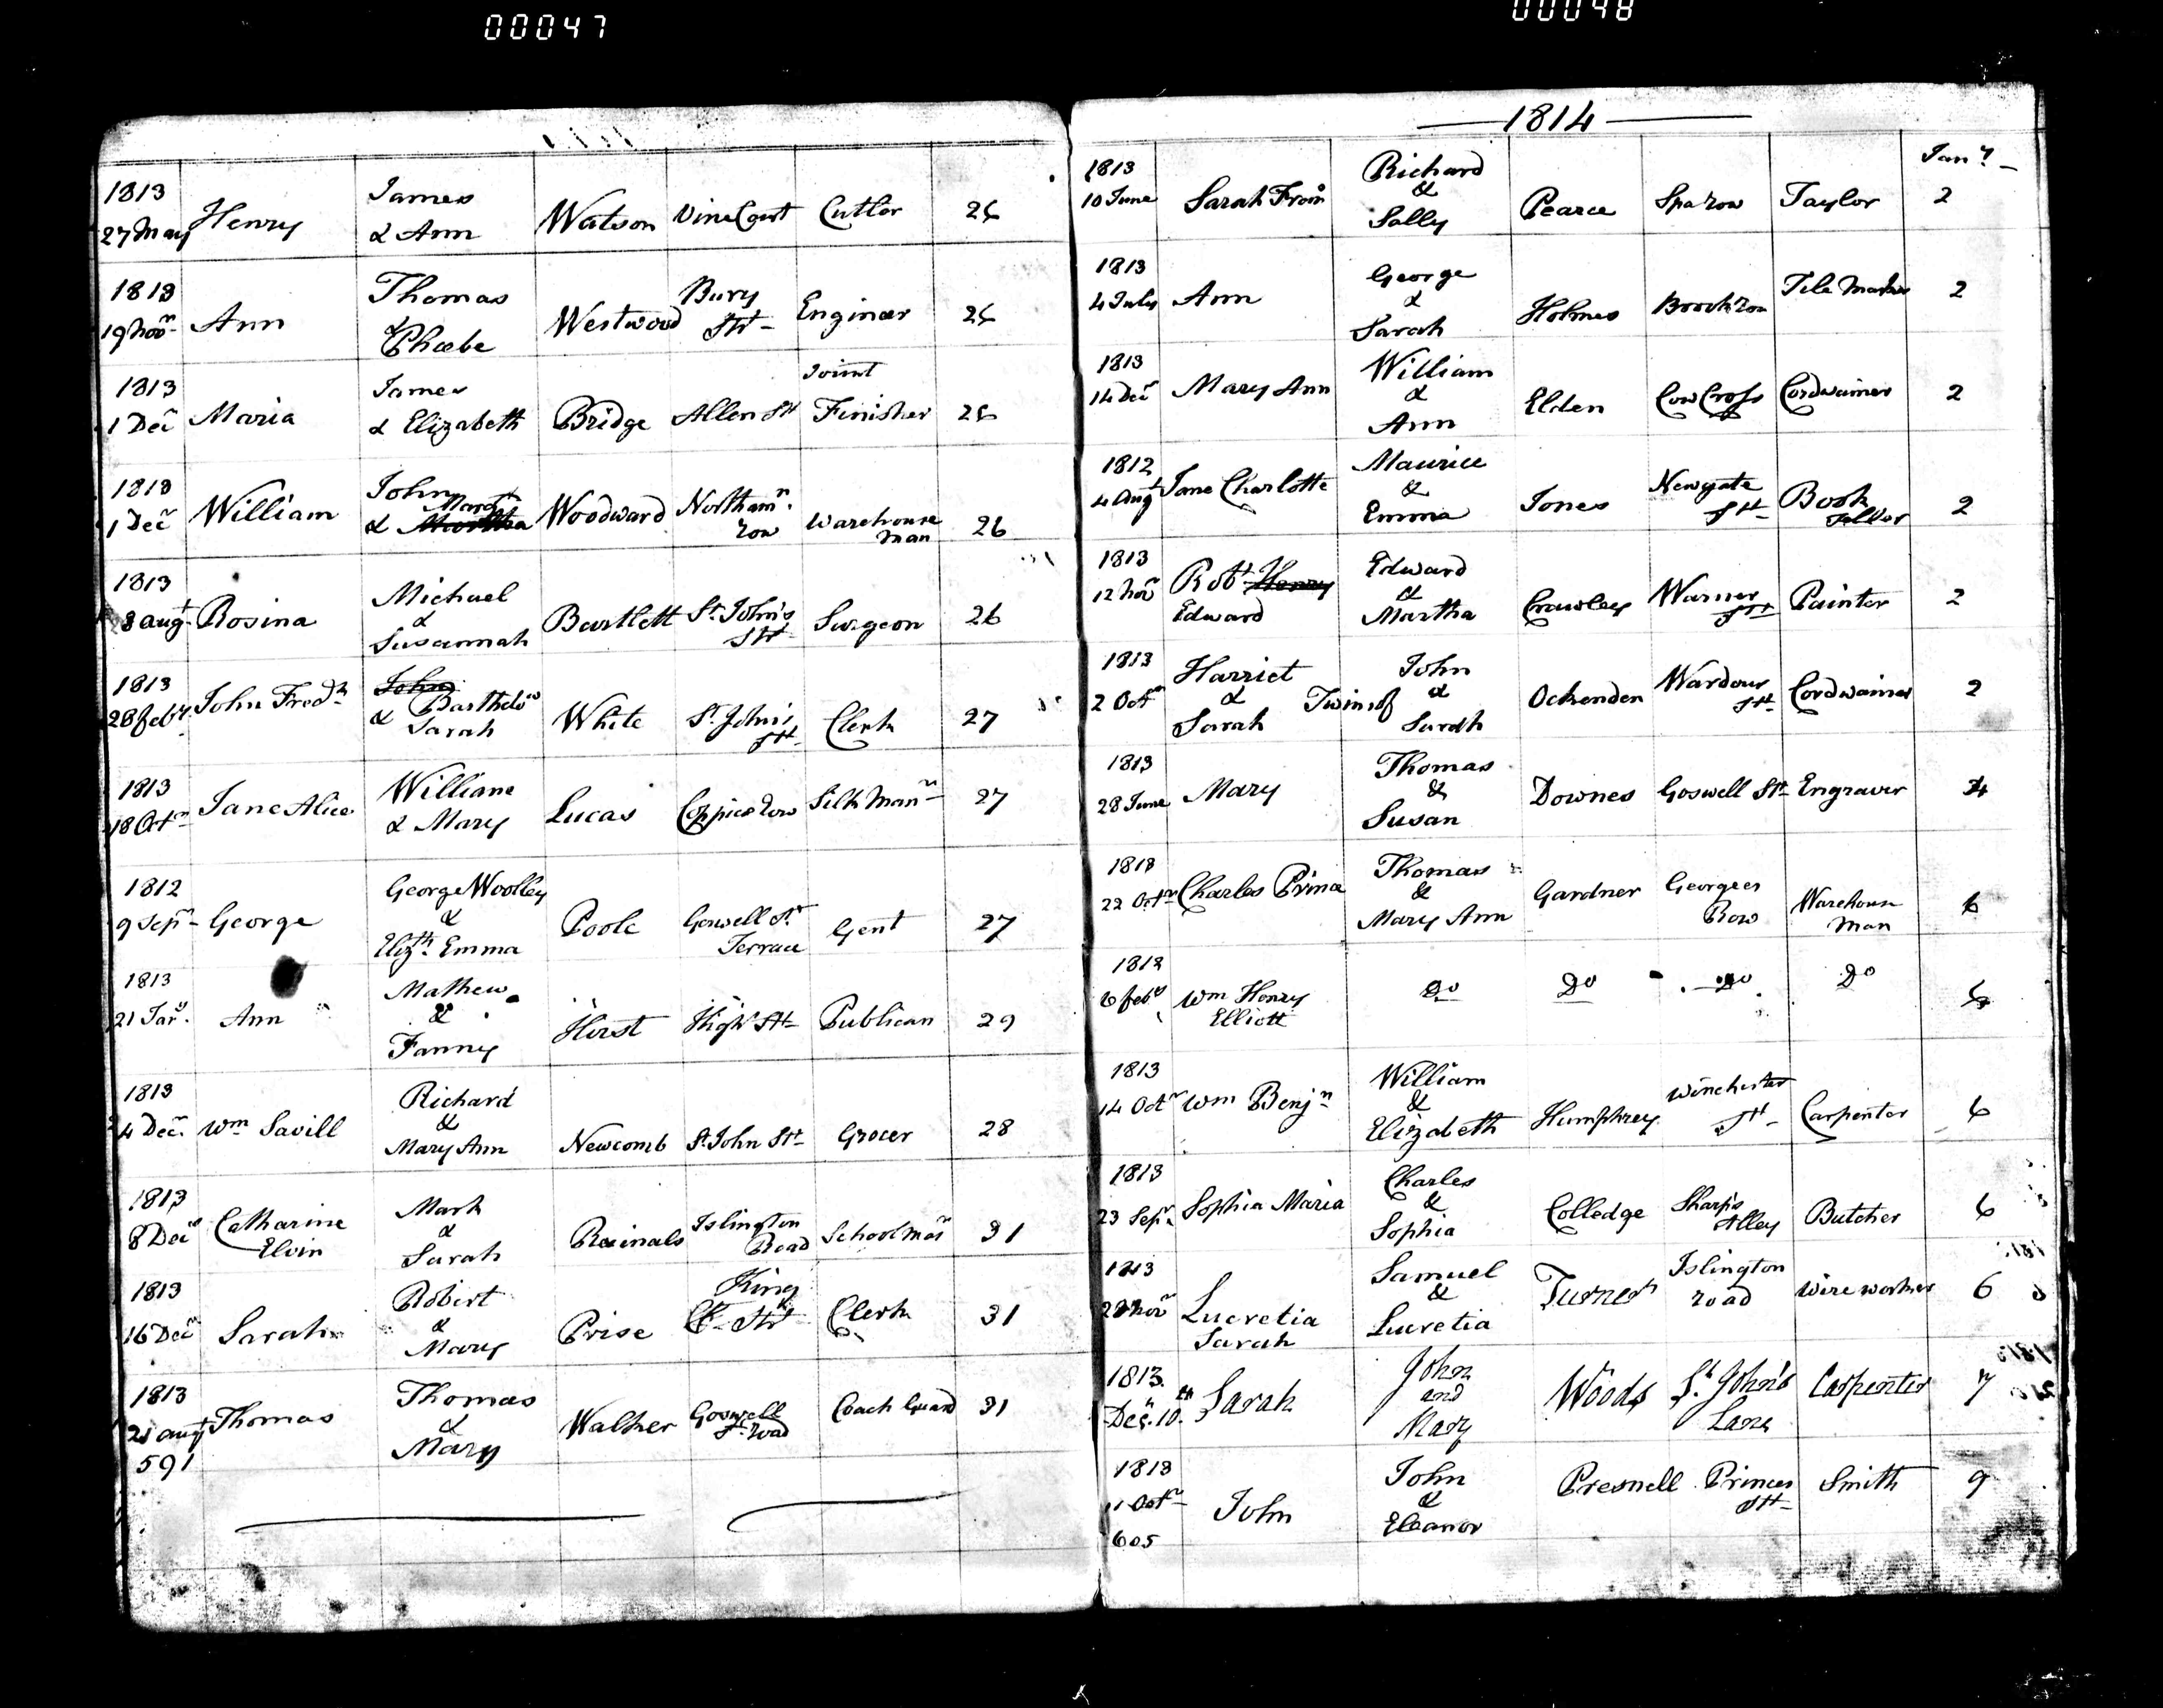 00047
1813
27 May Henry James & Ann Watson Vine Court Cutler 26
1813
19 Novr Ann Thomas & Phœbe Westwood Bury Strt Engineer 26
1813
1 Decr Maria James & Elizabeth Bridge Allen St Joint Finisher 26
1813
1 Decr William John & Mary Woodward Northamn row Warehouse man 26
1813
8 Augt Rosina Michael & Susannah Bartlett St John's Str Surgeon 26
1813
28 feby John Fredk John Bartholow & Sarah White St John's St Clerk 27
1813
18 Octr Jane Alice William & Mary Lucas Coppice row Silk Mann 27
1812
9 Sepr George George Woolley & Elizth Emma Poole Goswell St Terrace Gent 27
1813
21 Jany Ann Mathew & Fanny Hirst High St Publican 29
1813
4 Decr Wm Savill Richard & Mary Ann Newcomb St John St Grocer 28
1813
8 Decr Catharine Elvin Mark & Sarah Reinals Islington Road Schoolmar 31
1813
16 Decr Sarah Robert & Mary Prise King Str Clerk 31
1813
21 Augt Thomas Thomas & Mary Walker Goswell St road Coach Guard 31
591
00048
1814
Jany
1813
10 June Sarah Richard & Sally Pearce Spa row Taylor 2
1813
4 July Ann George & Sarah Holmes Brook row Tile Maker 2
1813
14 Decr Mary Ann William & Ann Elden Cow Cross Cordwainer 2
1812
4 Augt Jane Charlotte Maurice & Emma Jones Newgate St Book Seller 2
1813
12 Novr Robt Henry Edward Edward & Martha Crawley Warner St Painter 2
1813
2 Octr Harriet & Sarah Twins of John & Sarah Ockenden Wardour St Cordwainer 2
1813
28 June Mary Thomas & Susan Downes Goswell St Engraver 4
1813
22 Octr Charles Prince Thomas & Mary Ann Gardner Georges Row Warehouse man 6
1812
6 feby Wm Henry Elliott Do Do Do Do 6
1813
14 Octr Wm Benjn William & Elizabeth Humphrey Winchester St Carpenter 6
1813
23 Sepr Sophia Maria Charles & Sophia Colledge Sharp's Alley Butcher 6
1813
Novr Lucretia Sarah Samuel & Lucretia Turner Islington road Wire worker 6
1813
Decr 10th Sarah John and Mary Woods St John's Lane Carpenter 7
1813
11 Octr John John & Eleanor Presnell Princes St Smith 9
605